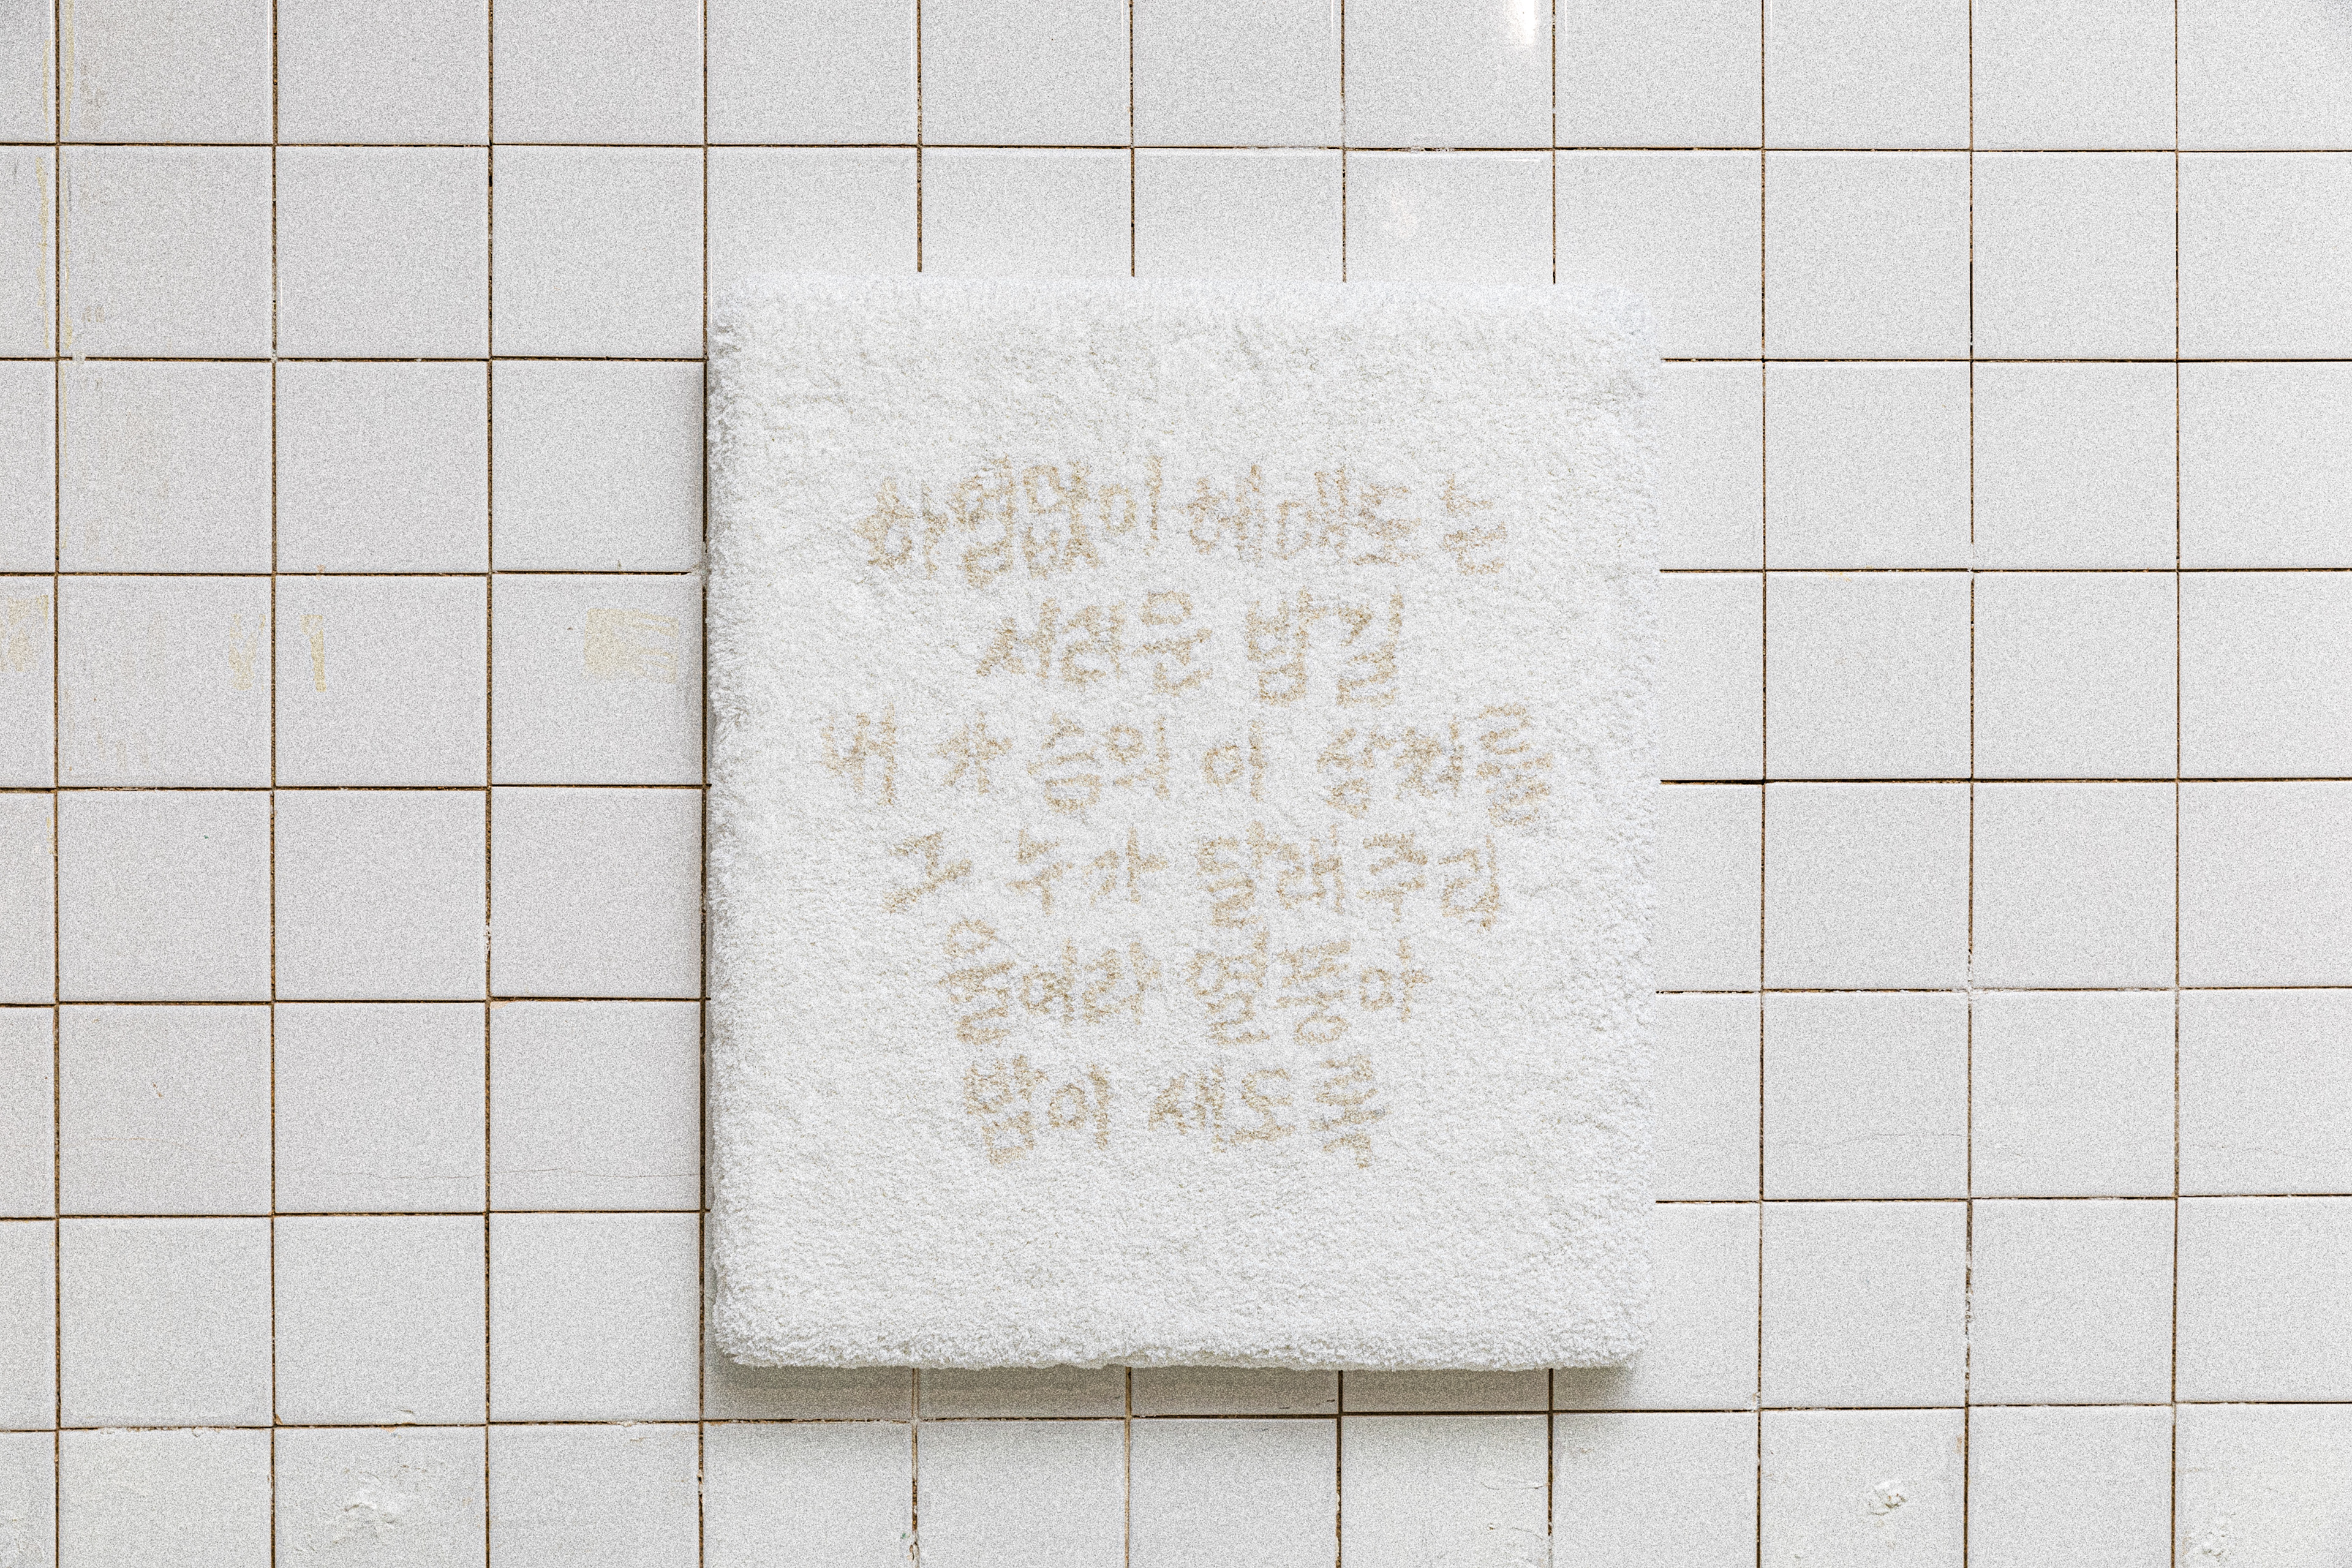 하염없이 헤매도는
서러운 밤길
내 가슴의 이 상처를
그 누가 달래주리
울어라 열풍아
밤이 새도록